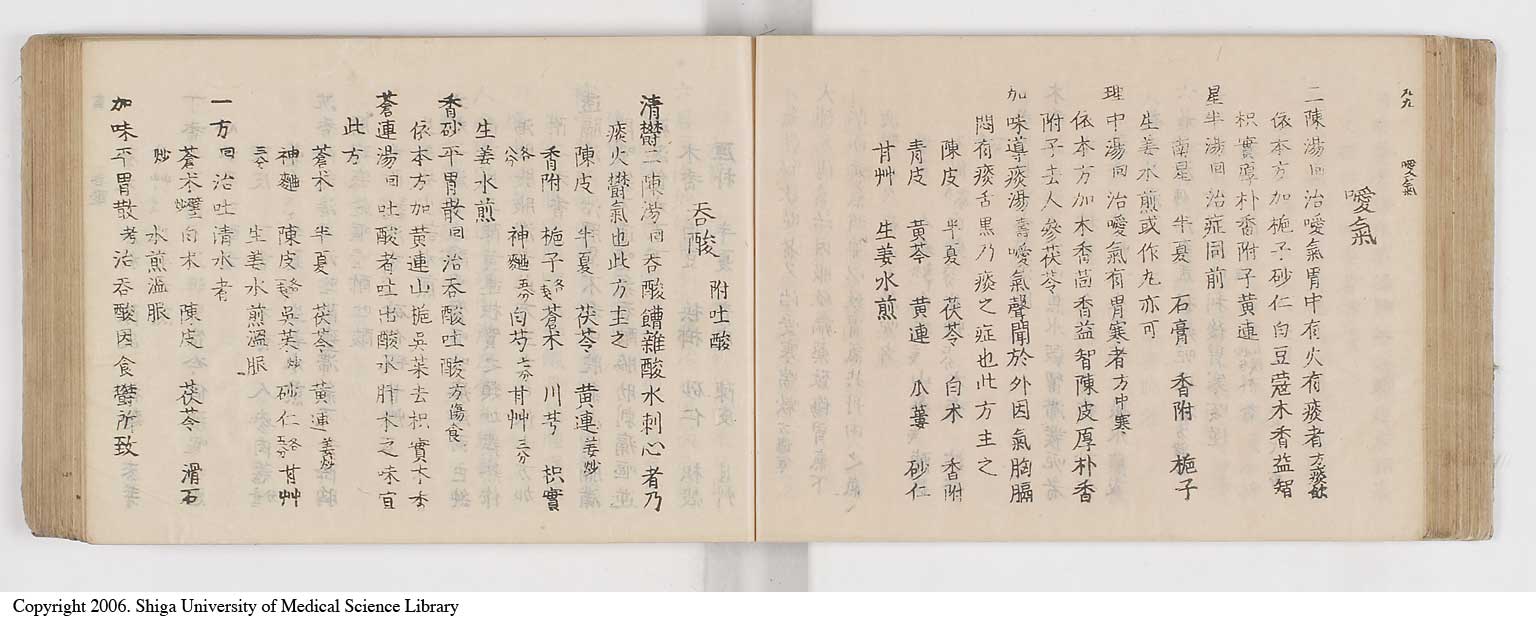 九九
噯氣
噯氣
二陳湯曰治噯氣胃中有火有痰者方痰飲
依本方加梔子砂仁白豆蔻木香益智
枳實厚朴香附子黃連
星半湯曰治症同前
南星 半夏 石膏 香附 梔子
生姜水煎或作丸亦可
理中湯曰治噯氣有胃寒者方中寒
依本方加木香茴香益智陳皮厚朴香
附子去人參茯苓
加味導痰湯壽噯氣聲聞於外因氣胸膈
悶有痰舌黑乃痰之症也此方主之
陳皮 半夏 茯苓 白朮 香附
青皮 黃芩 黃連 瓜蔞 砂仁
甘艸 生姜水煎
吞酸 附吐酸
清欝二陳湯曰吞酸饋雜酸水刺心者乃
痰火欝氣也此方主之
陳皮 半夏 茯苓 黃連姜炒
香附各八分 梔子 蒼朮 川芎 枳實
神麯五分 白芍七分 甘艸三分
生姜水煎
香砂平胃散曰治吞酸吐酸方傷食
依本方加黃連山梔吳茱去枳實木香
蒼連湯曰吐酸者吐出酸水肝木之味宜
此方
蒼朮 半夏 茯苓 黃連姜炒
神麯 陳皮 吳茱炒 砂仁各五分 甘艸
三分 生姜水煎溫服
一方曰治吐清水者
蒼朮 白朮 陳皮 茯苓 滑石
炒 水煎溫服
加味平胃散考治吞酸因食欝所致